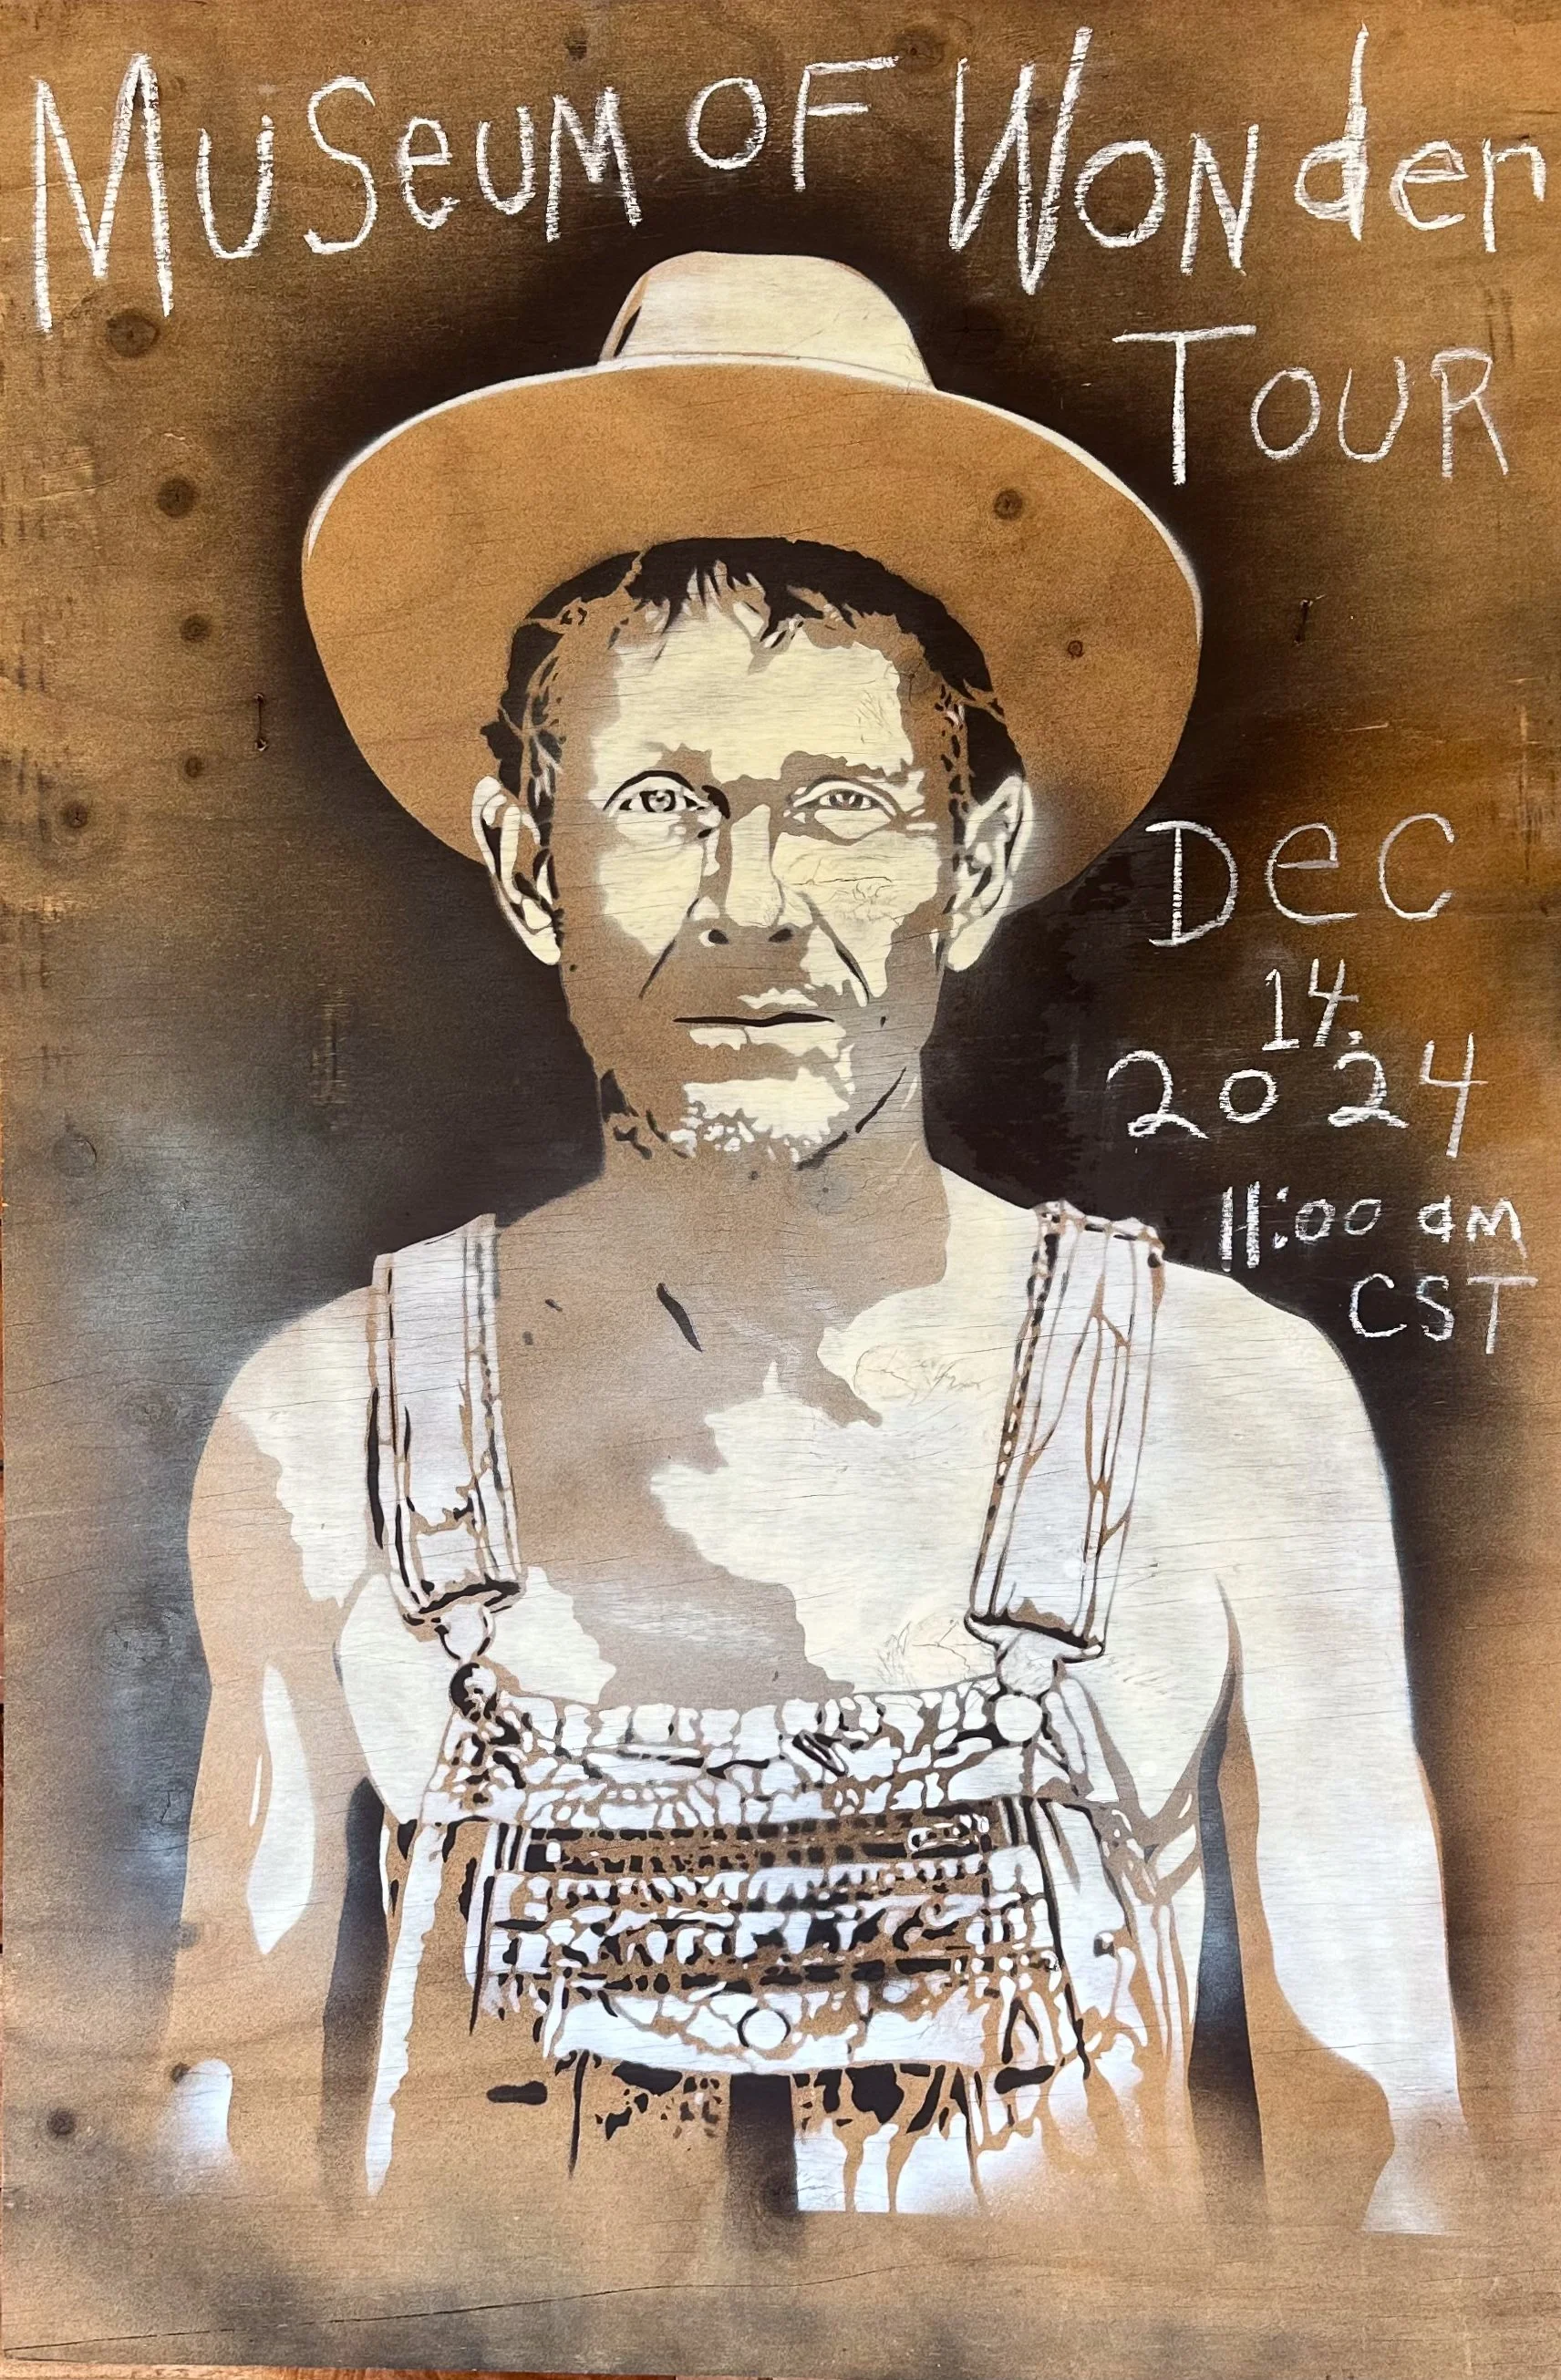 MuSeuM OF WoNder
TOUR
Dec
14,
2024
11:00 am
CST